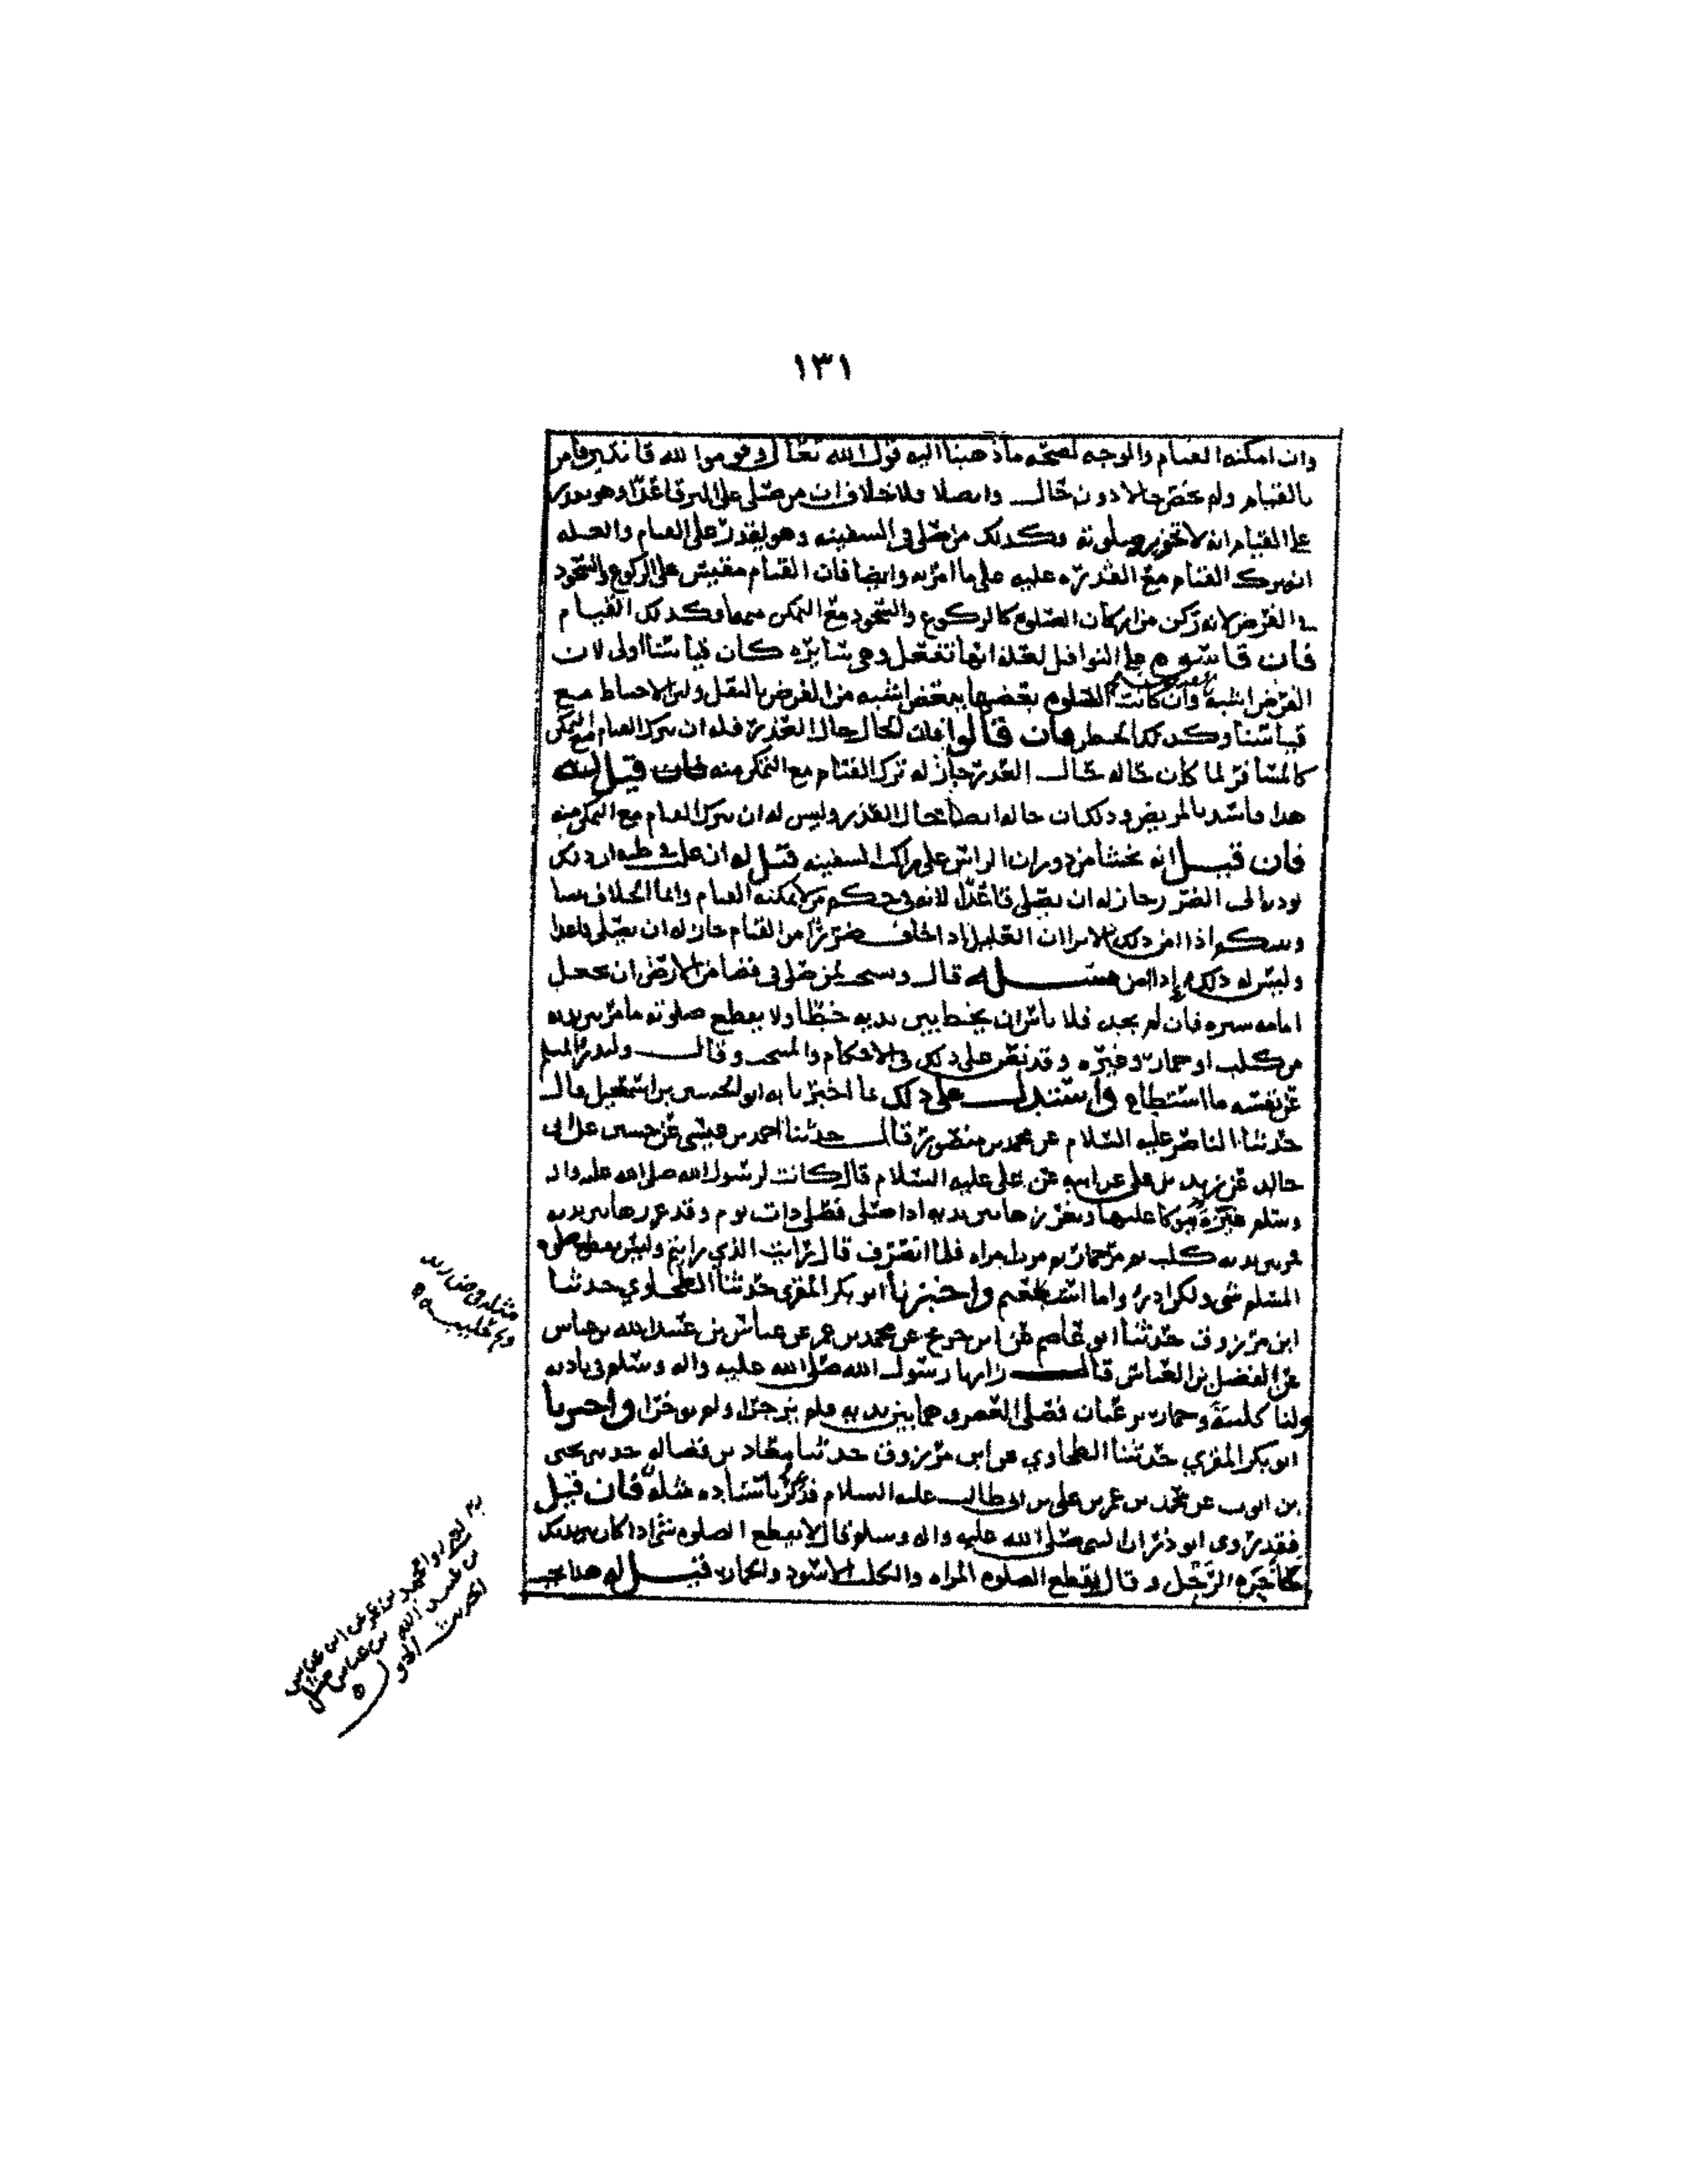 ١٣١
وان امكنه القيام والوجه لصحه ما ذهبنا اليه قول الله تعالى وقوموا لله قانتين فامر
بالقيام ولم يخص حالا دون حال وايضا فلا خلاف ان من صلى على البر قاعدا وهو يقدر
على القيام انه لا تجوز صلوته وكذلك من صلى في السفينه وهو يقدر على القيام والعله
انه ترك القيام مع القدره عليه على ما امر به وايضا فان القيام مقيس على الركوع والسجود
في الفرض لانه ركن من اركان الصلوه كالركوع والسجود مع التمكن منهما وكذلك القيام
فان قاسوه على النوافل لعله انها تفعل وهي سائره كان قياسنا اولى لان
الفرض اشبه وان كانت الصلوه بعضها ببعض اشبه من الفرض بالنفل ولان الاحتياط مع
قياسنا وكذلك الحظر فان قالوا فان الحال حال العذر فله ان يترك القيام مع التمكن
كالمسافر لما كان حاله حال العذر جاز له ترك القيام مع التمكن منه قيل له
هذا فاسد بالمريض وذلك ان حاله ايضا حال العذر وليس له ان يترك القيام مع التمكن منه
فان قيل انه يخشا من دوران الراس على راكب السفينه قيل له ان غلب في ظنه ان ذلك
يودى الى الضرر جاز له ان يصلى قاعدا لانه في حكم من لا يمكنه القيام وانما الخلاف بيننا
وبينكم اذا امن ذلك الا ترا ان العليل اذا خاف ضررا من القيام جاز له ان يصلى قاعدا
وليس له ذلك اذا امن مسئله قال ويستحب لمن صلى في فضا من الارض ان يجعل
امامه ستره فان لم يجد فلا باس ان يخط بين يديه خطا ولا يقطع صلوته ما مر بين يديه
من كلب او حمار وغيره وقد نص على ذلك في الاحكام والمنتخب وقال وليدرأ المسلم
عن نفسه ما استطاع واستدل على ذلك بما اخبرنا به ابو الحسين بن اسمعيل قال
حدثنا الناصر عليه السلام عن محمد بن منصور قال حدثنا احمد بن عيسى عن حسين عن ابي
خالد عن زيد بن علي عن ابيه عن علي عليه السلام قال كانت لرسول الله صلى الله عليه واله
وسلم عنزه يتوكا عليها ويغرزها بين يديه اذا صلى فصلى ذات يوم وقد غرزها بين يديه
فمر بين يديه كلب ثم مر حمار ثم مرت امراه فلما انصرف قال رايت الذي رايتم وليس يقطع صلوه
المسلم شي ولكن ادرؤا ما استطعتم واخبرنا ابو بكر المقري حدثنا الطحاوي حدثنا
ابن مرزوق حدثنا ابو عاصم عن ابن جريج عن محمد بن عمر عن عباس بن عبيد الله بن عباس
عن الفضل بن العباس قال زارنا رسول الله صلى الله عليه واله وسلم في باديه
ولنا كلبه وحمار يرعيان فصلى العصر وهما بين يديه فلم يزجرا ولم يوخرا واخبرنا
ابو بكر المقري حدثنا الطحاوي عن ابن مرزوق حدثنا معاذ بن فضاله حدثني يحيى
بن ايوب عن محمد بن عمر بن علي بن ابي طالب عليه السلام فذكر باسناده مثله فان قيل
فقد روى ابو ذر ان النبي صلى الله عليه واله وسلم قال لا يقطع الصلوه شي اذا كان بين يديك
كآخره الرحل وقال يقطع الصلوه المراه والكلب الاسود والحمار قيل له هذا